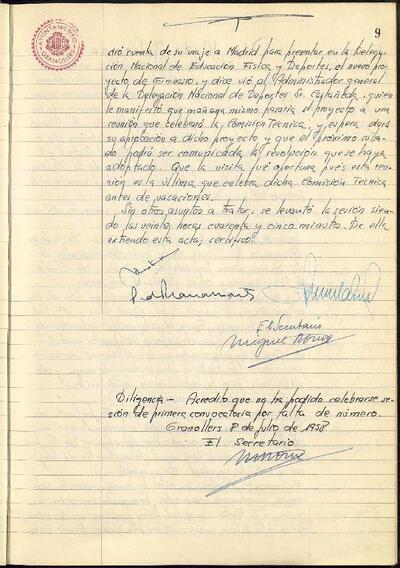 AYUNTAMIENTO
GRANOLLERS
9
dió cuenta de su viaje a Madrid para presentar en la Delega-
ción Nacional de Educación Física y Deportes, el nuevo pro-
yecto de Gimnasio, y dice vió al Administrador general
de la Delegación Nacional de Deportes Sr. Castañeda, quien
le manifestó que mañana mismo pasaria el proyecto a una
reunión que celebrará la Comision Tecnica, y espera dará
su aprobacion a dicho proyecto y que el próximo sába-
do podrá ser comunicada la resolución que se haya
adoptado. Que la visita fué oportuna pués esta reu-
nión es la última que celebra dicha Comisión Tecnica
antes de vacaciones.
Sin otros asuntos a tratar, se levantó la sesión sien-
do las veinte horas cuarenta y cinco minutos. De ella
extiendo esta acta; certifico.
El Secretario
Miguel
Diligencia.- Acredito que no ha podido celebrarse se-
sión de primera convocatoria por falta de número.
Granollers 8 de julio de 1958
El Secretario